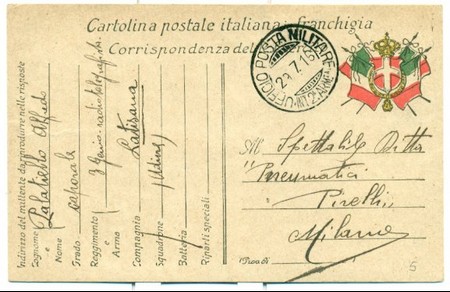 Cartolina postale italiana in franchigia
Corrispondenza del
UFFICIO POSTA MILITARE
29.7.15
All.
Spettabile Ditta
"Pneumatici
Pirelli"
Milano
Prov. di
5
Indirizzo del mittente da riprodurre nelle risposte
Cognome e Nome
Alfredo
Grado caporale
Reggimento o Arma 3 Genio
Compagnia Latisana
Squadrone (Udine)
Batteria
Riparti speciali